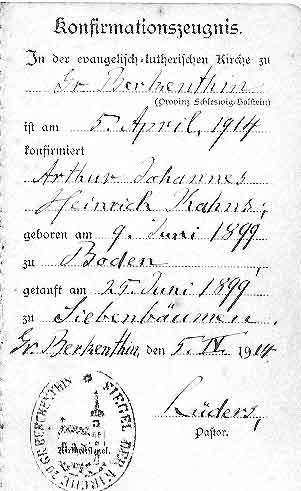 Konfirmationszeugnis.
In der evangelisch-lutherischen Kirche zu
Gr Berkenthin
(Provinz Schleswig-Holstein)
ist am 5. April, 1914
konfirmiert
Arthur Johannes
Heinrich Kahns,
geboren am 9. Juni 1899
zu Boden,
getauft am 25. Juni 1899
zu Siebenbäumen.
Gr. Berkenthin, den 5. IV. 1914
Lüders,
Pastor.
SIEGEL DER KIRCHE ZU GR. BERKENTHIN